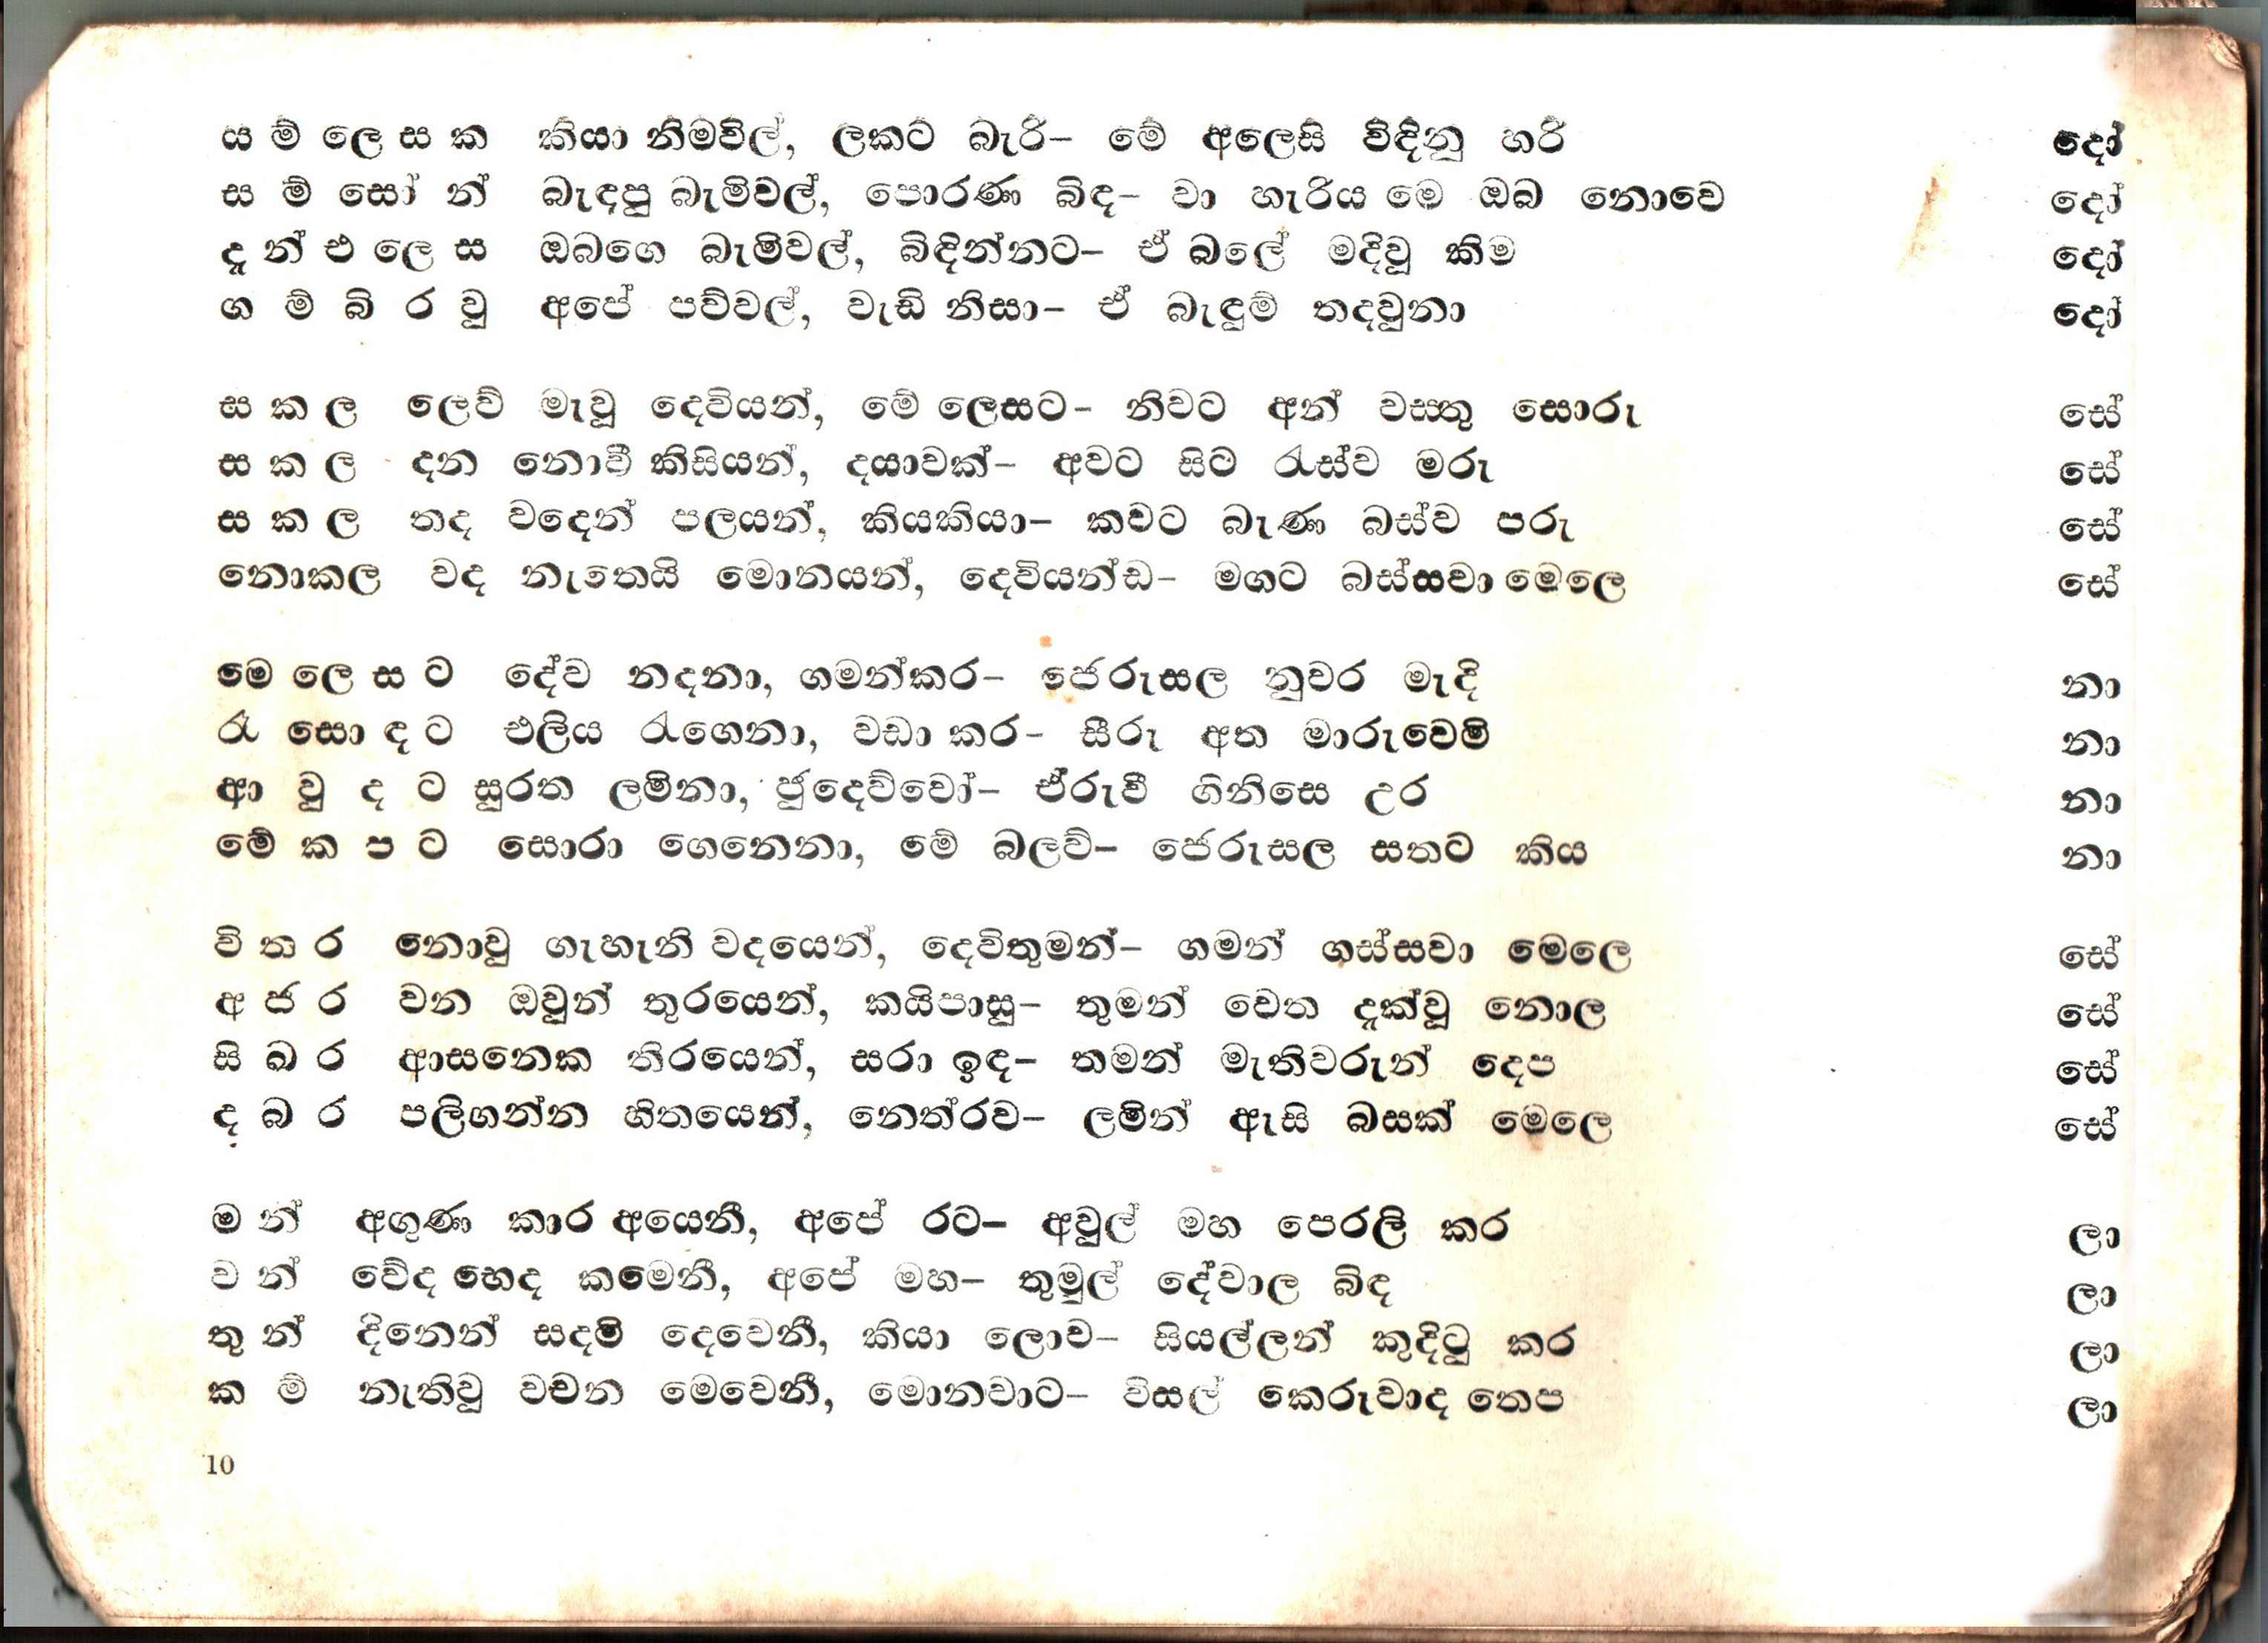 ය ම් ලෙ ස ක කියා නිමවිල්, ලකට බැරි– මේ අලෙසි විඳිනු හරි දෝ
ස ම් සෝ න් බැඳපු බැමිවල්, පොරණ බිඳ– වා හැරිය මෙ ඔබ නොවෙ දෝ
දැ න් එ ලෙ ස ඔබගෙ බැමිවල්, බිඳින්නට– ඒ බලේ මදිවූ කිම දෝ
ග ම් බි ර වු අපේ පව්වල්, වැඩි නිසා– ඒ බැඳුම් තදවුනා දෝ
ස ක ල ලෙව් මැවූ දෙවියන්, මේ ලෙසට– නිවට අන් වස්තු සොරු සේ
ස ක ල දන නොවී කිසියන්, දයාවක්– අවට සිට රැස්ව මරු සේ
ස ක ල තද වදෙන් පලයන්, කියකියා– කවට බැණ බස්ව පරු සේ
නොකල වද නැතෙයි මොනයන්, දෙවියන්ඩ– මගට බස්සවා මෙලෙ සේ
මෙ ලෙ ස ට දේව නදනා, ගමන්කර– ජෙරුසල නුවර මැදි නා
රෑ සො ඳ ට එලිය රැගෙනා, වඩා කර– සීරු අත මාරුවෙමි නා
ආ වු ද ට සුරත ලමිනා, ජුදෙව්වෝ– ඒරුවී ගිනිසෙ උර නා
මේ ක ප ට සොරා ගෙනෙනා, මේ බලව්– ජෙරුසල සතට කිය නා
වි ත ර නොවු ගැහැනි වදයෙන්, දෙවිතුමන්– ගමන් ගස්සවා මෙලෙ සේ
අ ජ ර වන ඔවුන් තුරයෙන්, කයිපාසු– තුමන් වෙත දැක්වූ නොල සේ
සි ඛ ර ආසනෙක තිරයෙන්, සරා ඉඳ– තමන් මැතිවරුන් දෙප සේ
ද බ ර පලිගන්න හිතයෙන්, නෙත්රව– ලමින් ඇසි බසක් මෙලෙ සේ
ම න් අගුණ කාර අයෙනී, අපේ රට– අවුල් මහ පෙරලි කර ලා
ව න් වේද භෙද කමෙනී, අපේ මහ– තුමුල් දේවාල බිඳ ලා
තු න් දිනෙන් සදමි දෙවෙනී, කියා ලොව– සියල්ලන් කුදිටු කර ලා
ක ම් නැතිවූ වචන මෙවෙනී, මොනවාට– විසල් කෙරුවාද තෙප ලා
10